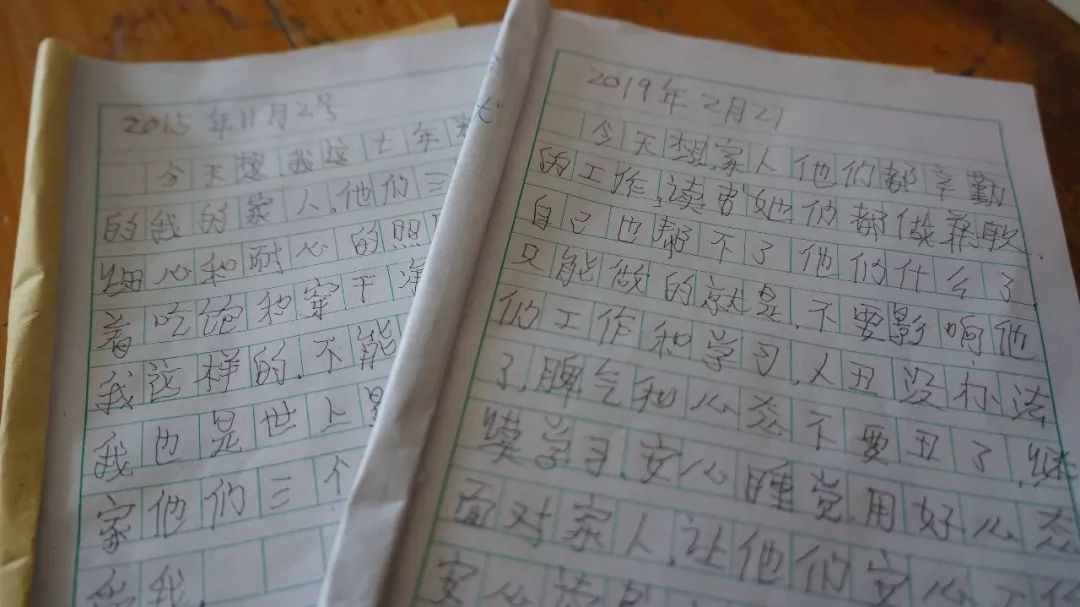 2015年11月2号
今天想我这七年
的我的家人.他们三
细心和耐心的照
着吃饱和穿干净
我这样的.不能
我也是世上
家他们三个
我.
2019年2月27
今天想家人他们都辛勤
的工作,读书她们都做
自己也帮不了他们什么了.
只能做的就是.不要影响他
们工作和学习.人丑没办法
了,脾气和心态不要丑了,继
续学习.安心睡觉.用好心态
面对家人.让他们安心工作
安心读